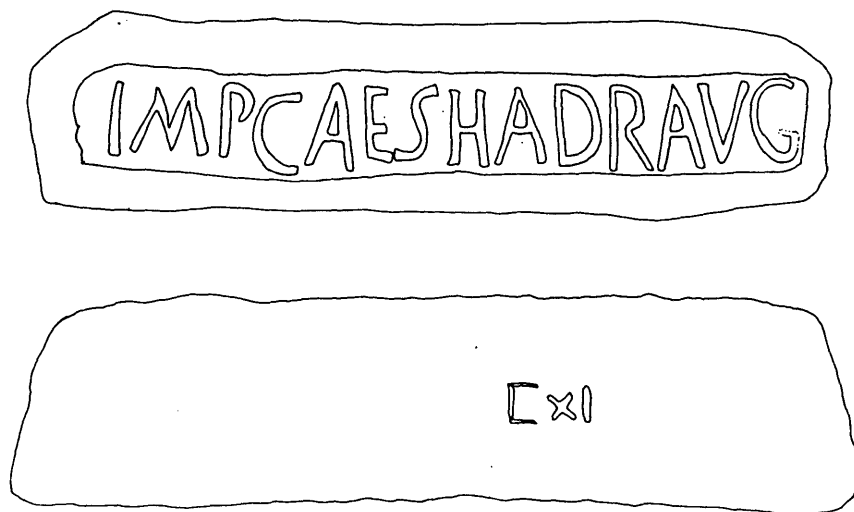 IMPCAESHADRAVG
CXI